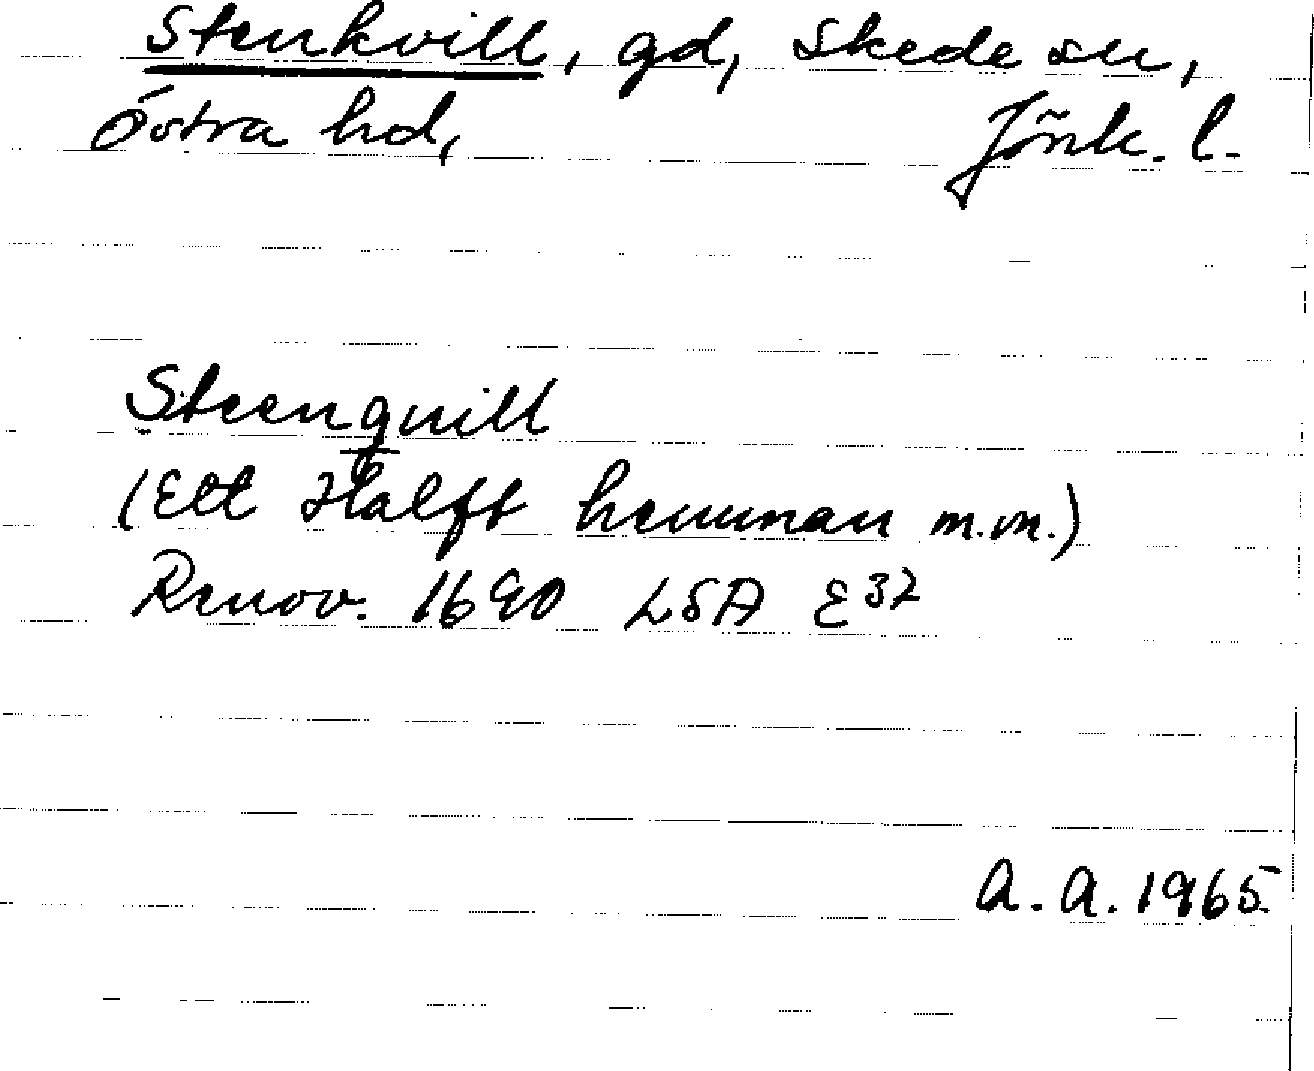 Stenkvill, gd, Skede sn,
Östra hd, Jönk. l.
Steenquill
(Ett Halft hemman m.m.)
Renov. 1690 LSA E 32
A. A. 1965.